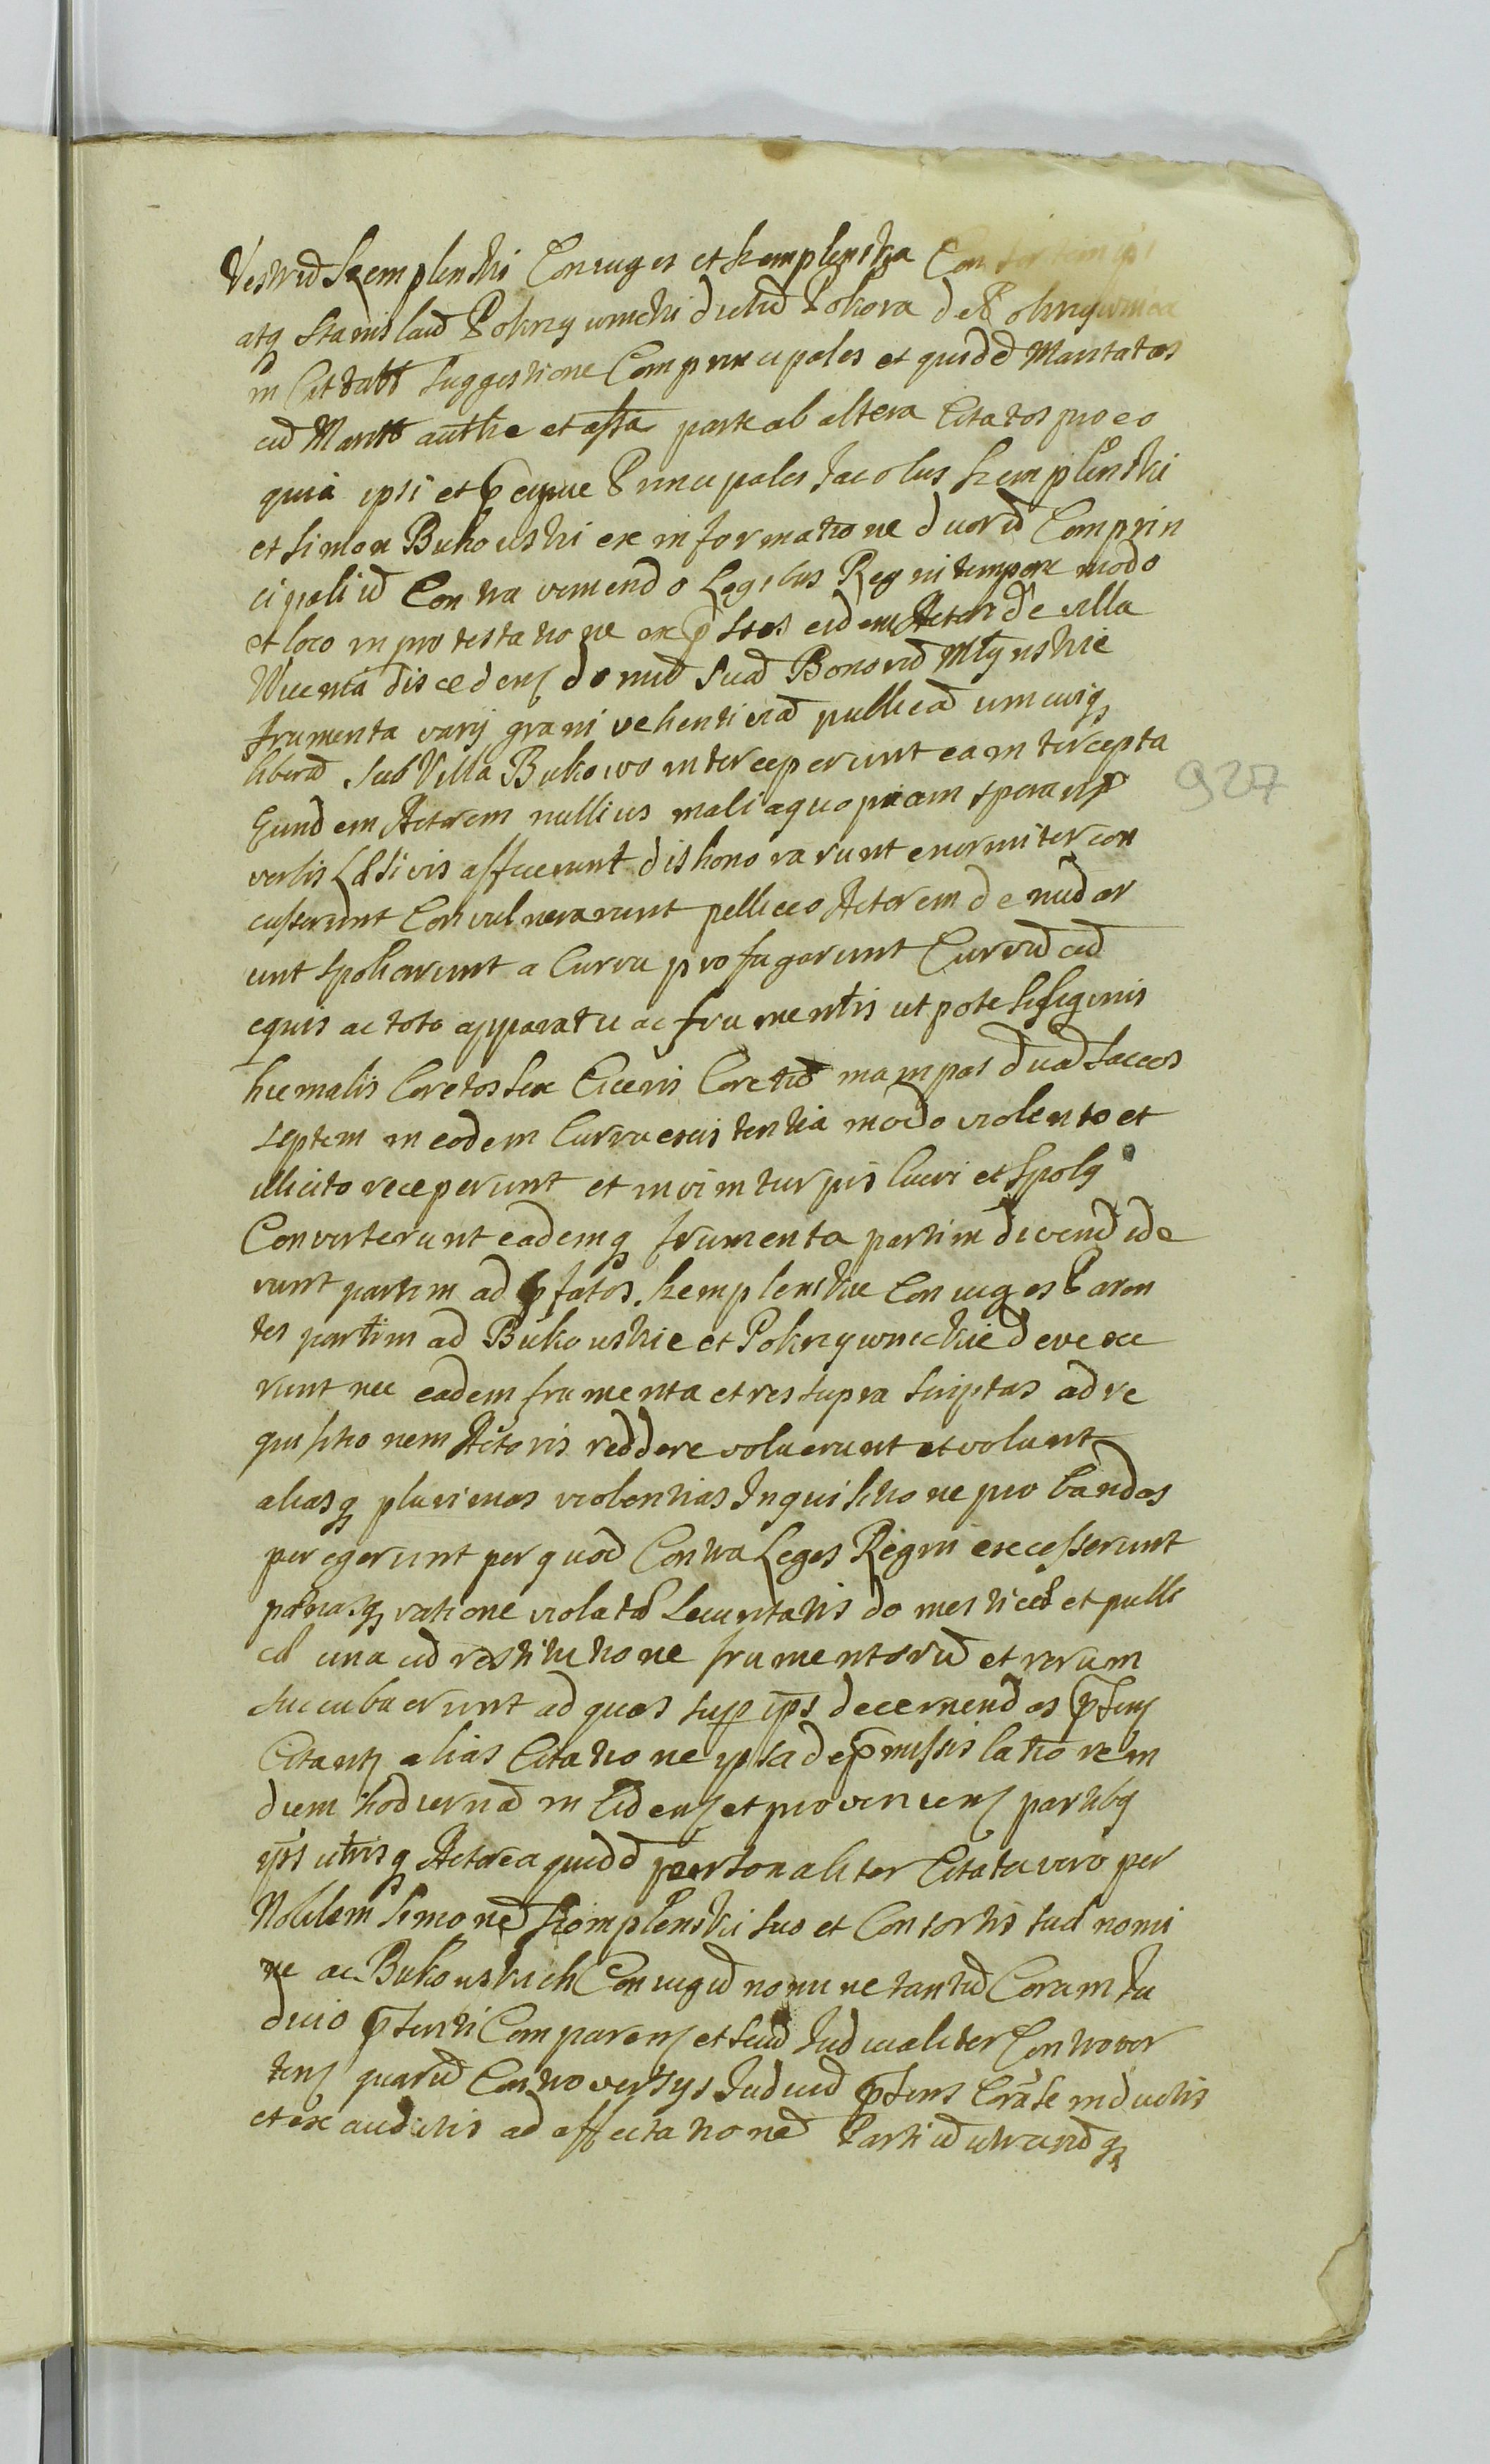 Vestrũ Kzemplenski Coniuges et kemplenska
atq Stanislaũ Pokrzywnicki dictũ Pokora de Pokrzywnica
in Cittatt suggestione Comprincipales et quidẽ Maritatas
cũ Maritt authe et assa parte ab altera Citatos pro eo
quia ipsi et pcipue Principales Jacobus kemplenski
et Simon Bukowski ex informatione duorũ Comprin
cipaliũ Contra veniendo Legibus Regni tempore modo
et loco in protestatione expssos eidem Actori de villa
Wicenia discedenς domũ Suã Bonorũ Młynskie
frumenta varij grani vehenti viã publicã unicuiq
liberã Sub Villa Bukowo interceperunt ea intercepta
Eundem Actorem nullius mali a quopiam
verbis Læsivis affecerunt dishonorarunt enormiter con
cusserunt Convulnerarunt pelliceo Actorem denudar
unt spoliarunt a Curru profugarunt Currũ cũ
equis ac toto apparatu ac frumentis utpote Sissiginis
hiemalis Coretos Sex Ciceris Coretũ mampas duas Saccos
septem in eodem Curru existentia modo violento et
illicito receperunt et in vim turpis lucri et Spolij
Converterunt eademq frumenta partim divendide
runt partim ad pfatos kemplenskie Coniuges Paren
tes partim ad Bukowskie et Pokrzywnickie devexe
runt nec eadem frumenta et res supra scriptas ad re
quisitionem Actoris reddere voluerunt et volunt
aliasq plurimas violentias Inquisitione probandas
peregerunt per quod Contra Leges Regni excesserunt
pænasq ratione violatæ Securitatis domesticæ et publi
cæ una cũ restitutione frumentorũ et rerum
succubuerunt ad quas sup ipis decernendas pntem
Citanς alias Citatione ipsa de pmissis latiore in
diem hodiernã in Cidenς et provenienς partibq
ipis utrisq Actorea quidẽ personaliter Citata vero per
Nobilem Simonẽ kemplenski suo et Consortis suæ nomi
ne ac Bukowskich Coniugũ nomine tantũ Coram Ju
dicio pnti Comparenς et seũ Judicialiter Controver
tenς quarũ Controversijs Judiciũ pntens Corã se inductis
et ex auditis ad affectationẽ Partiũ utrarũq
927